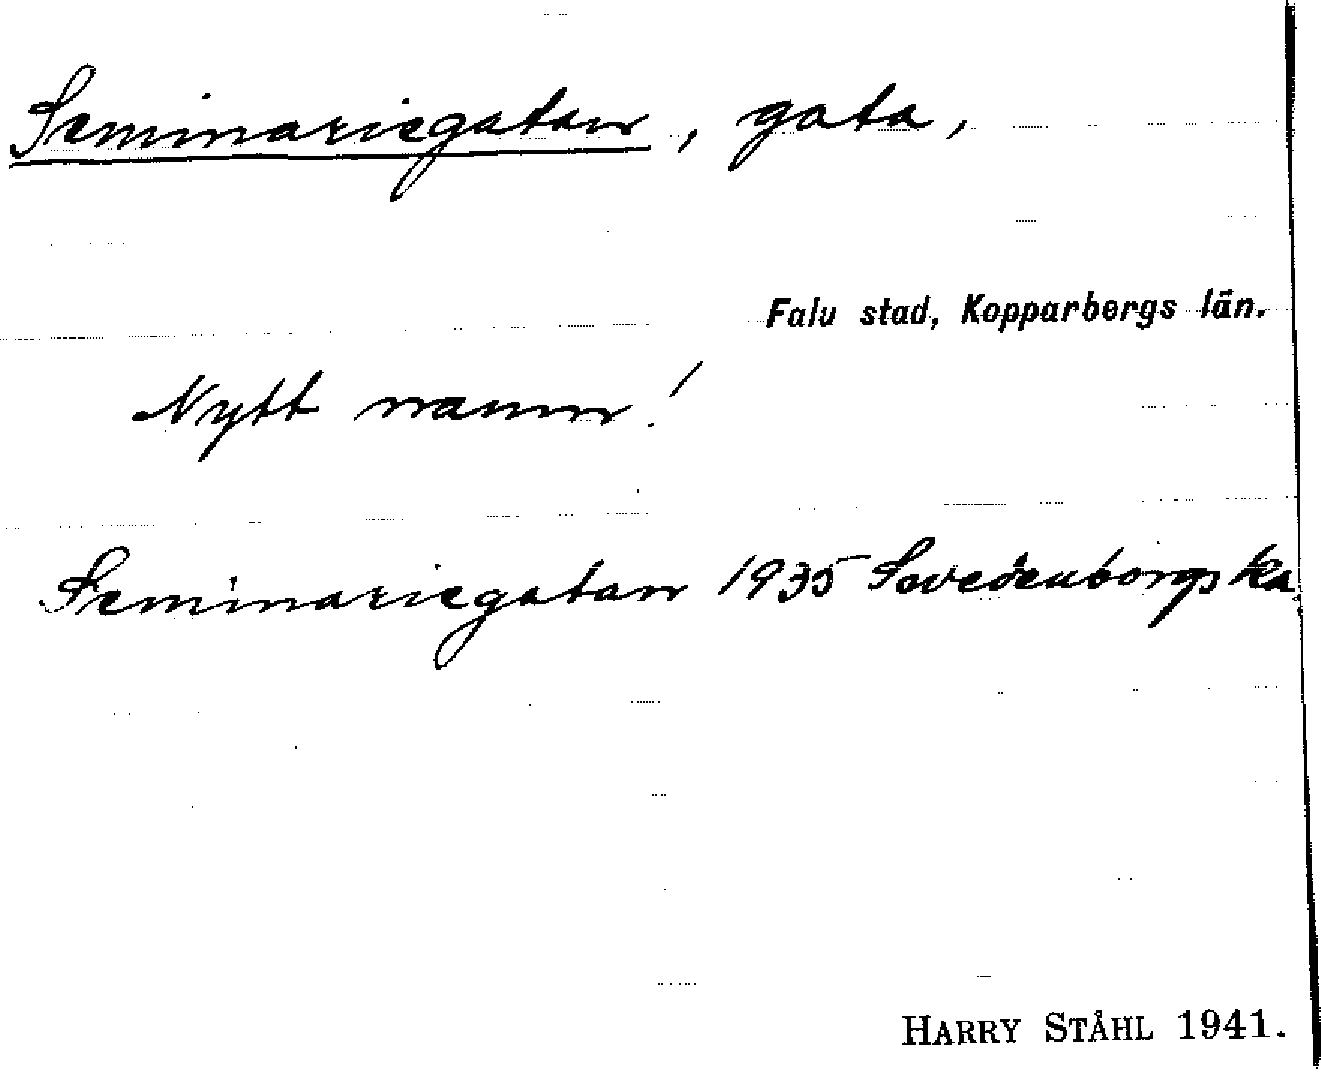 Seminariegatan, gata,
Falu stad, Kopparbergs län.
Nytt namn!
Seminariegatan 1935 Swedenborgska
HARRY STÅHL 1941.